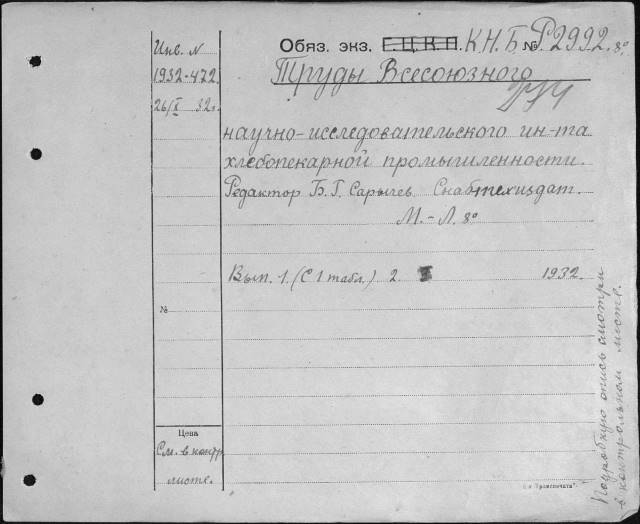 Инв. N
1932-472.
26/X 32г.
Обяз. экз. Е.Ц.К.П. К.Н.Б. № Р2992. 8º
Труды Всесоюзного
научно-исследовательского ин-та
хлебопекарной промышленности.
Редактор Б. Г. Сарычев Снабтехиздат.
М.-Л. 8º
Вып. 1. (С 1 табл.) 2. 1932.
№
Цена
См. в контр.
листе.
Подробную опись смотри
в контрольном листе.